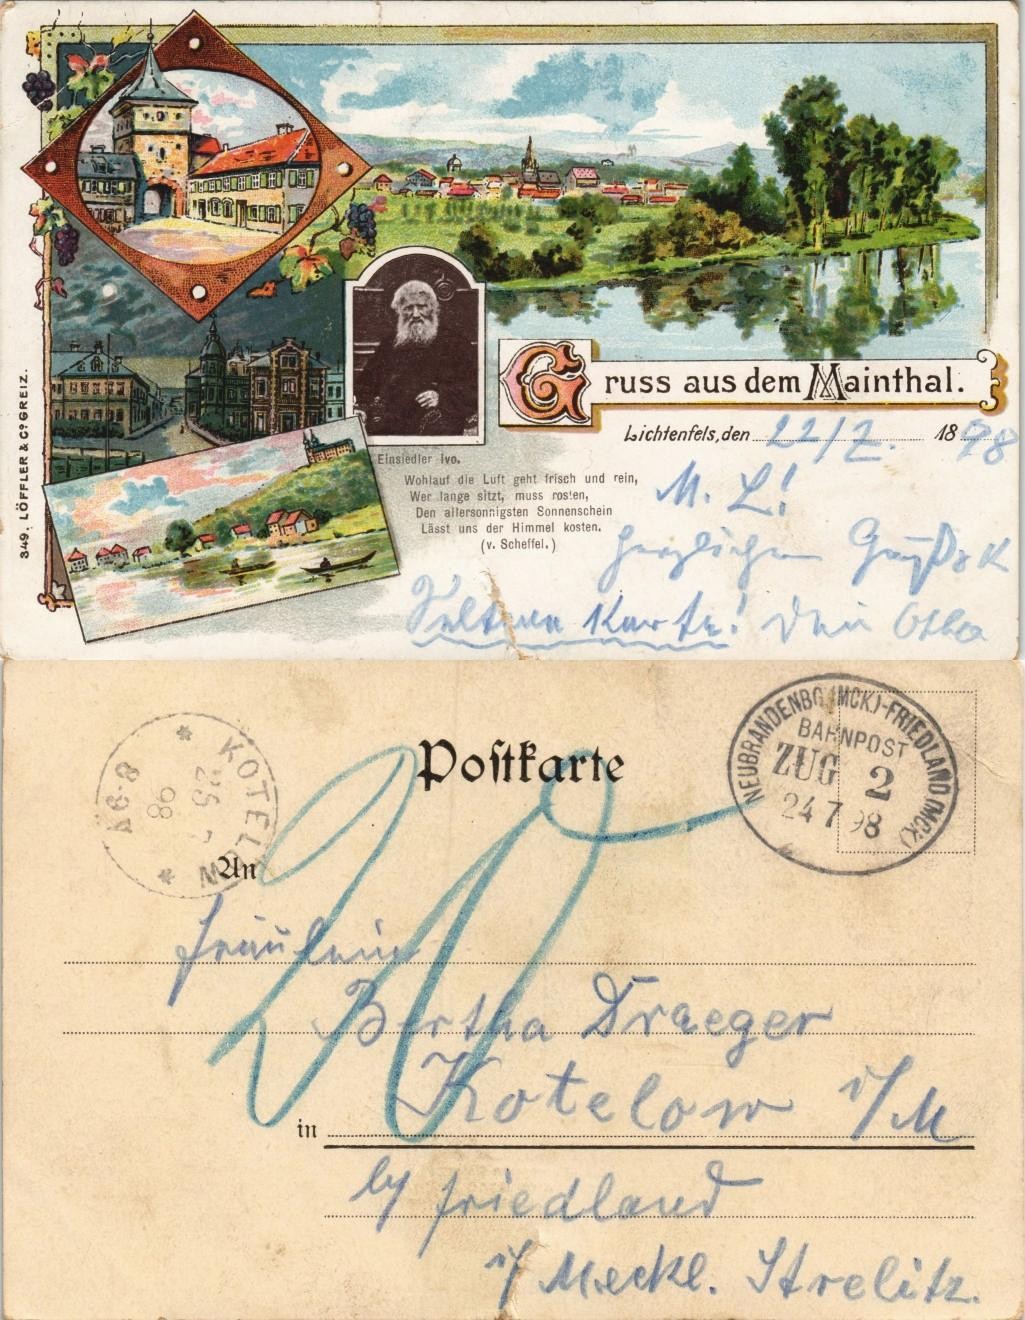 Gruss aus dem Mainthal.
Lichtenfels, den 22/7. 1898
M. L.!
Einsiedler Ivo.
Wohlauf die Luft geht frisch und rein,
Wer lange sitzt, muss rosten,
Den allersonnigsten Sonnenschein
Lässt uns der Himmel kosten.
(v. Scheffel.)
herzlichen
Karte! Dein
349. LÖFFLER & Co GREIZ.
Postkarte
KOTELOW
98
8-9V
NEUBRANDENBG (MCK)-FRIEDLAND (MCK)
BAHNPOST
ZUG 2
24 7 98
20
An
Fräulein
Bertha Draeger
in Kotelow i/M
by Friedland
i/ Meckl. Strelitz.